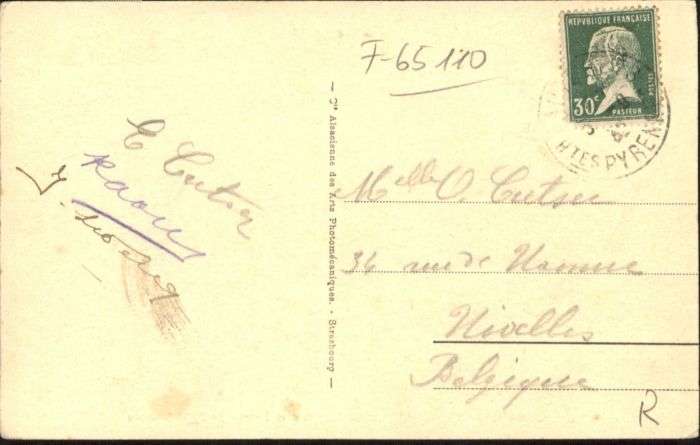 F-65110
RÉPUBLIQUE FRANÇAISE
30c
POSTES
PASTEUR
HTES PYREN
E Cutser
Raoul
J.
Cie Alsacienne des Arts Photomécaniques. - Strasbourg
Melle O. Cutser
34 rue de Namur
Nivelles
Belgique
R